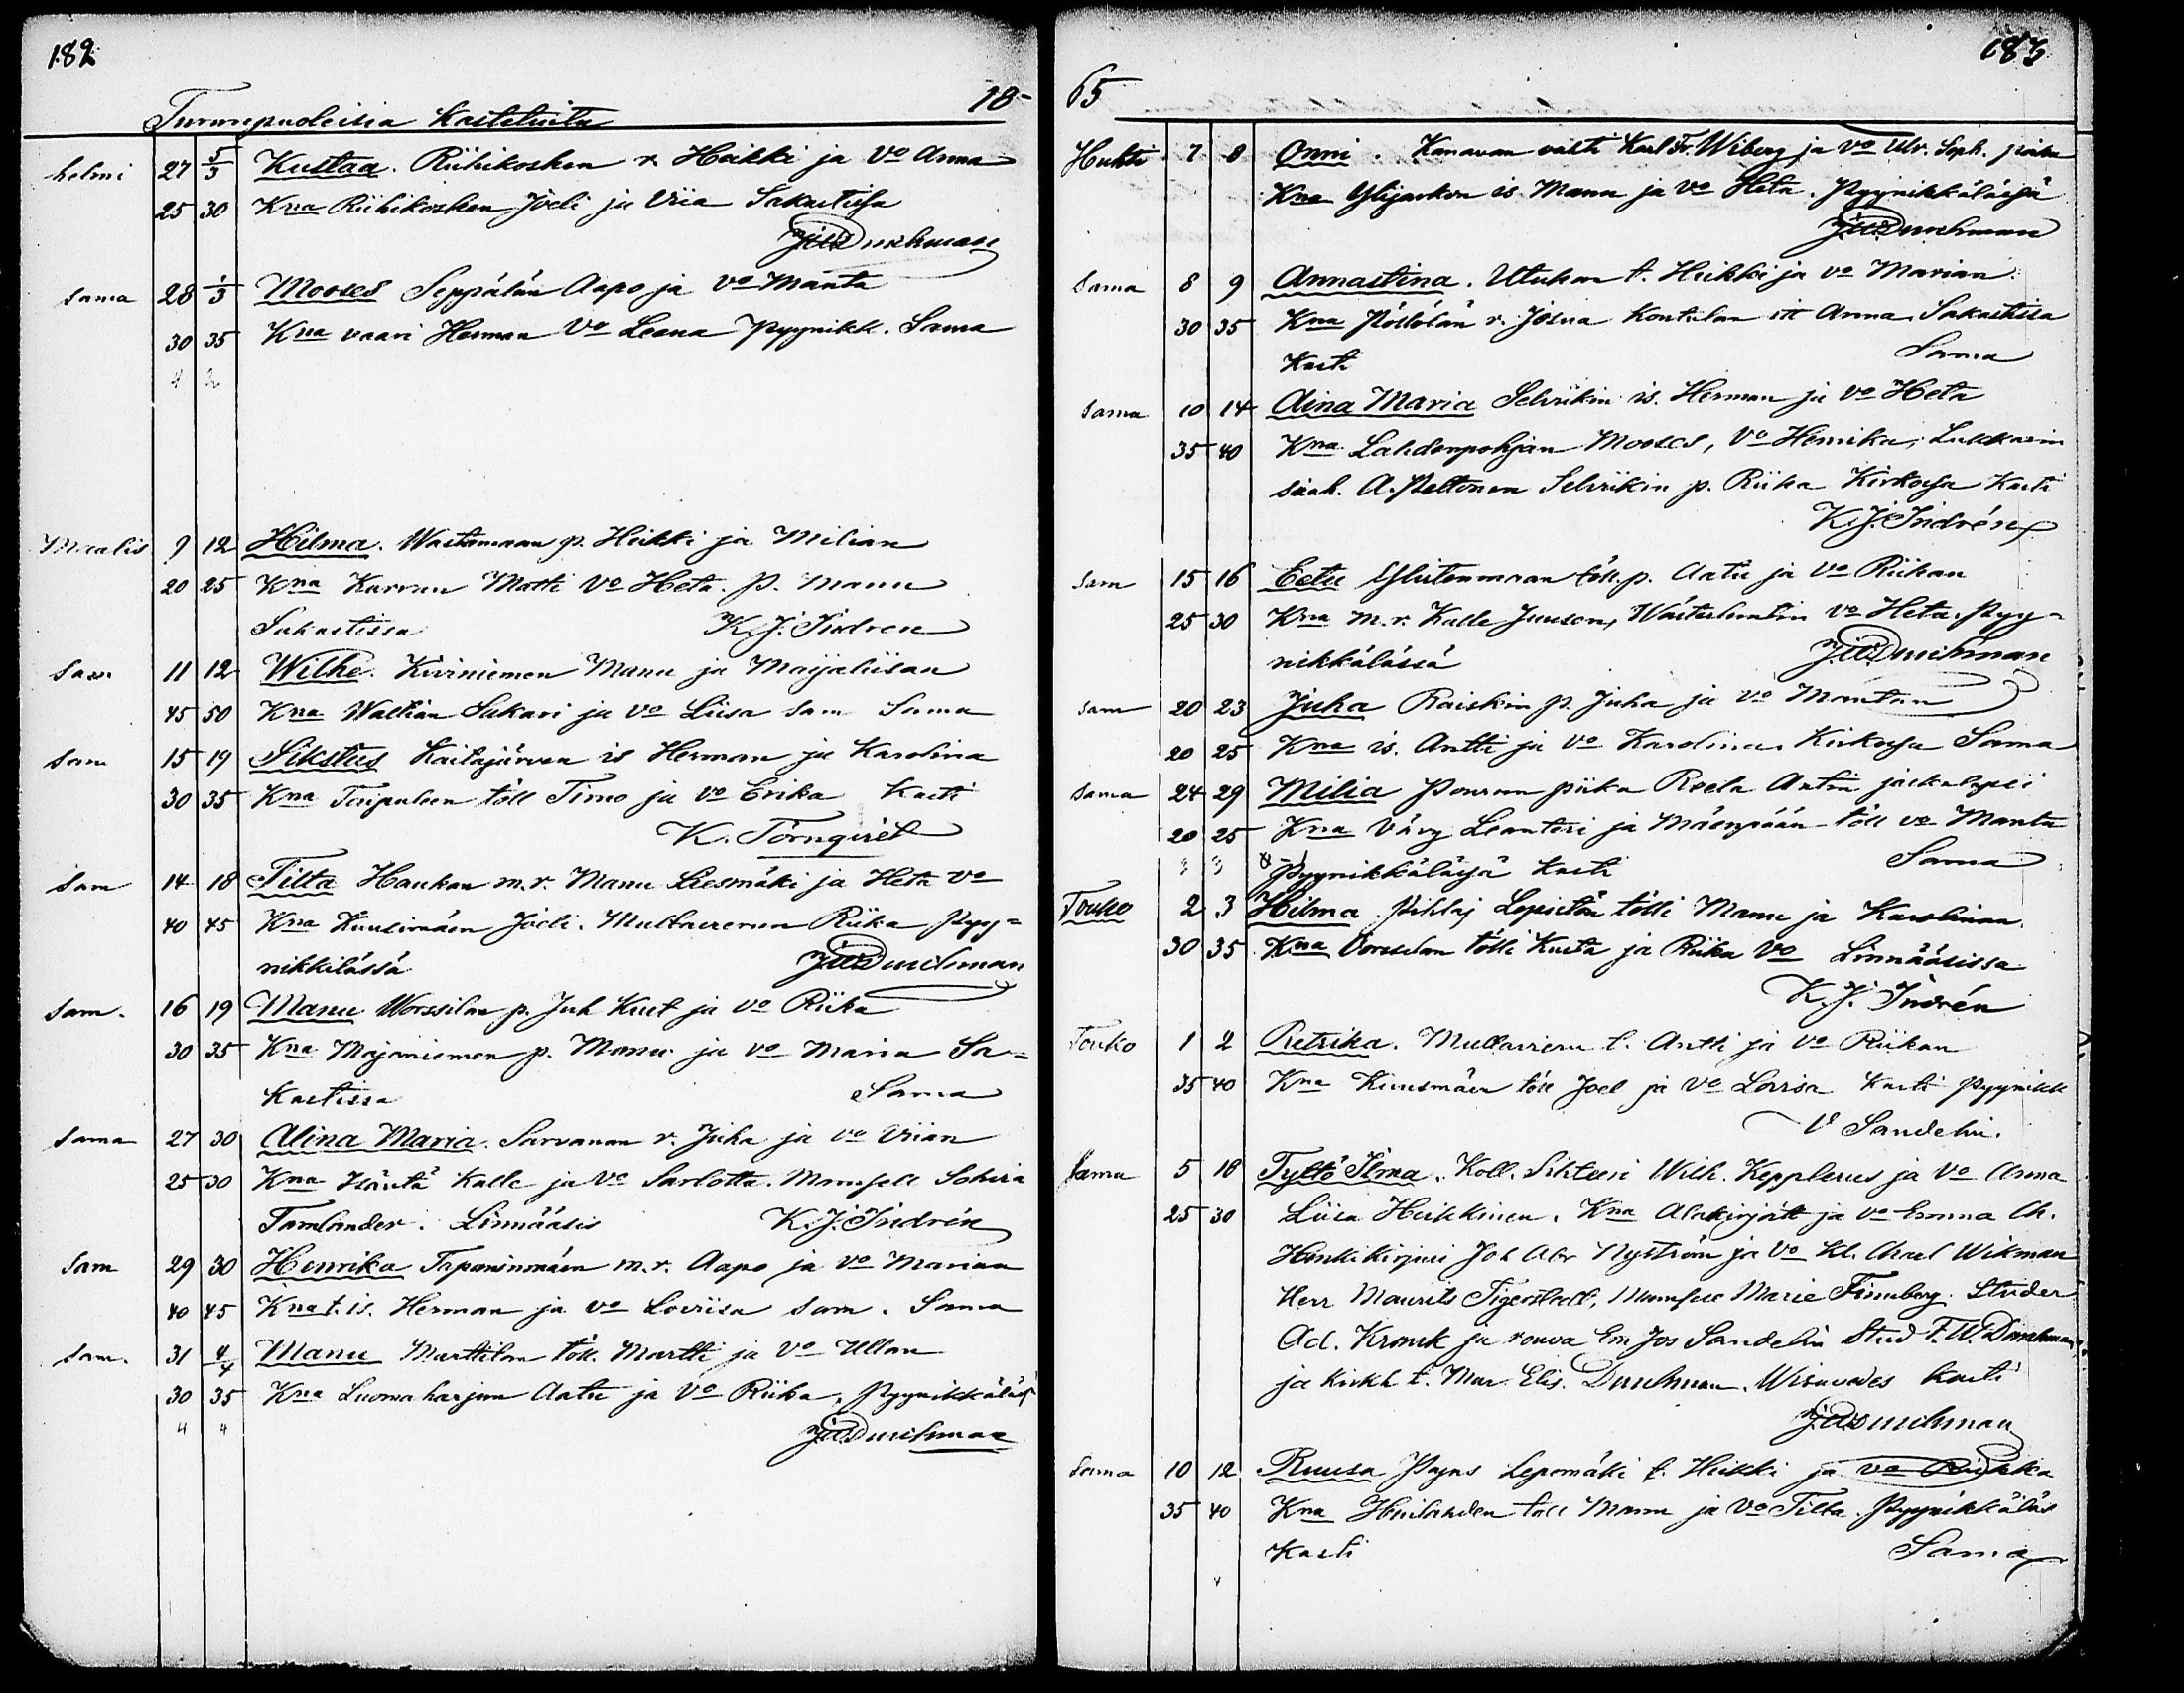 182
18-
Turunpuoleisia Kasteluita
helmi 27 5/3 Kustaa. Riihikosken r. Heikki ja Vo Anna
25 30 Kna Riihikosken Joeli ja Viia Sakastissa
Duchman
sama 28 1/3 Mooses Seppälän Aapo ja Vo Manta
30 35 Kna vaari Herman Vo Leena Pyynikk. Sama
4 2
Maalis 9 12 Hilma. Wastamaan p. Heikki ja Milian
20 25 Kna Karran Matti Vo Heta. p. Manu
Sakastissa K.J. Indren
Sam 11 12 Wilhe. Kiviniemen Manu ja Maijaliisan
45 50 Kna Waltian Sakari ja Vo Liisa Sam Sama
Sam 15 19 Sikstus Kaitajärven is Herman ja Karolina
30 35 Kna Taipaleen töll Timo ja Vo Erika Kasti
K. Törnqvist
Sam 14 18 Tilta Haukan m.r. Manu Liesmäki ja Heta Vo
40 45 Kna Kuusimäen Joeli. Multavierun Riika Pyy=
nikkilässä Duchman
Sam. 16 19 Manu Worssilan p. Juh Kust ja Vo Riika
30 35 Kna Majaniemen p. Manu ja Vo Maria Sa=
Kastissa Sama
Sama 27 30 Alina Maria. Sarvanan r. Juha ja Vo Viian
25 30 Kna Häntä Kalle ja Vo Sarlotta. Mamsell Sohvia
Tamlander. Linnääsis K.J. Indrén
Sam 29 30 Henrika Tapaninmäen m.r. Aapo ja Vo Marian
40 45 Kna t. is. Herman ja Vo Loviisa Sam. Sama
Sam. 31 4/4 Manu Marttilan töll. Martti ja Vo Ullan
30 35 Kna Luomaharjun Aatu ja Vo Riika, Pyynikkäläs
4 4 Duchman
183
65
Huhti 7 8 Onni. Kanavan vahti Karl Fr. Wiberg ja Vo Ulr. Soph. poika
Kna Ylijaakon is. Manu ja Vo Heta. Pyynikkäläsä
Duchman
Sama 8 9 Annastina. Utukan t. Heikki ja Vo Marian
30 35 Kna Pöllölän r. Josua Kontulan itt Anna Sakastissa
Kasti Sama
Sama 10 14 Aina Maria Selvikin is. Herman ja Vo Heta
35 40 Kna Lahdenpohjan Mooses, Vo Henrika, Lukkarin
siah. A. Peltonen Selvikin p. Riika Kirkossa Kasti
K.J. Indrén
Sam 15 16 Eetu Ylistenmaan töll. p. Aatu ja Vo Riikan
25 30 Kna m.r. Kalle Juuson, Wästerlundin Vo Heta. Pyy=
nikkälässä Duchman
Sam 20 23 Juha Raiskin p. Juha ja Vo Mantan
20 25 Kna is. Antti ja Vo Karolina. Kirkossa Sama
Sama 24 29 Milia Pouran piika Reeta Antin jalkalapsi
20 25 Kna Väry Leanteri ja Mäenpään töll Vo Manta
Pyynikkäläsä Kasti Sama
Touko 2 3 Hilma. Pihlaj Lepistön tölli Manu ja Karolinan
30 35 Kna Vorssilan tölli Kusta ja Riika Vo Linnääsissa
K.J. Indrén
Touko 1 2 Retrika. Multavieru t. Antti ja Vo Riikan
35 40 Kna Kuusmäen töll Joel ja Vo Lovisa Kasti Pyynikk
V Sandelin.
Sama 5 18 Tyltö Ilma. Koll. Sihteeri Wilh. Kepplerus ja Vo Anna
25 30 Liisa Heikkinen. Kna Alakirjoitt ja Vo Emma Ch.
Henkikirjuri Joh Abr Nyström ja Vo Kl. Axel Wikman
Herr Maurits Tigerstedt, Mamsell Marie Finnberg. Studer
Ad. Kronk ja rouva Em Jos Sandelin Stud F. W. Duchman,
ja Kirkh t. Mar. Elis. Duchman. Wesivedes Kasti
Duchman
Sama 10 12 Ruusa Pajus Lepomäki t. Heikki ja Vo Riikka
35 40 Kna Huilahden töll Manu ja Vo Tilta. Pyynikkäläs
Kasti Sama